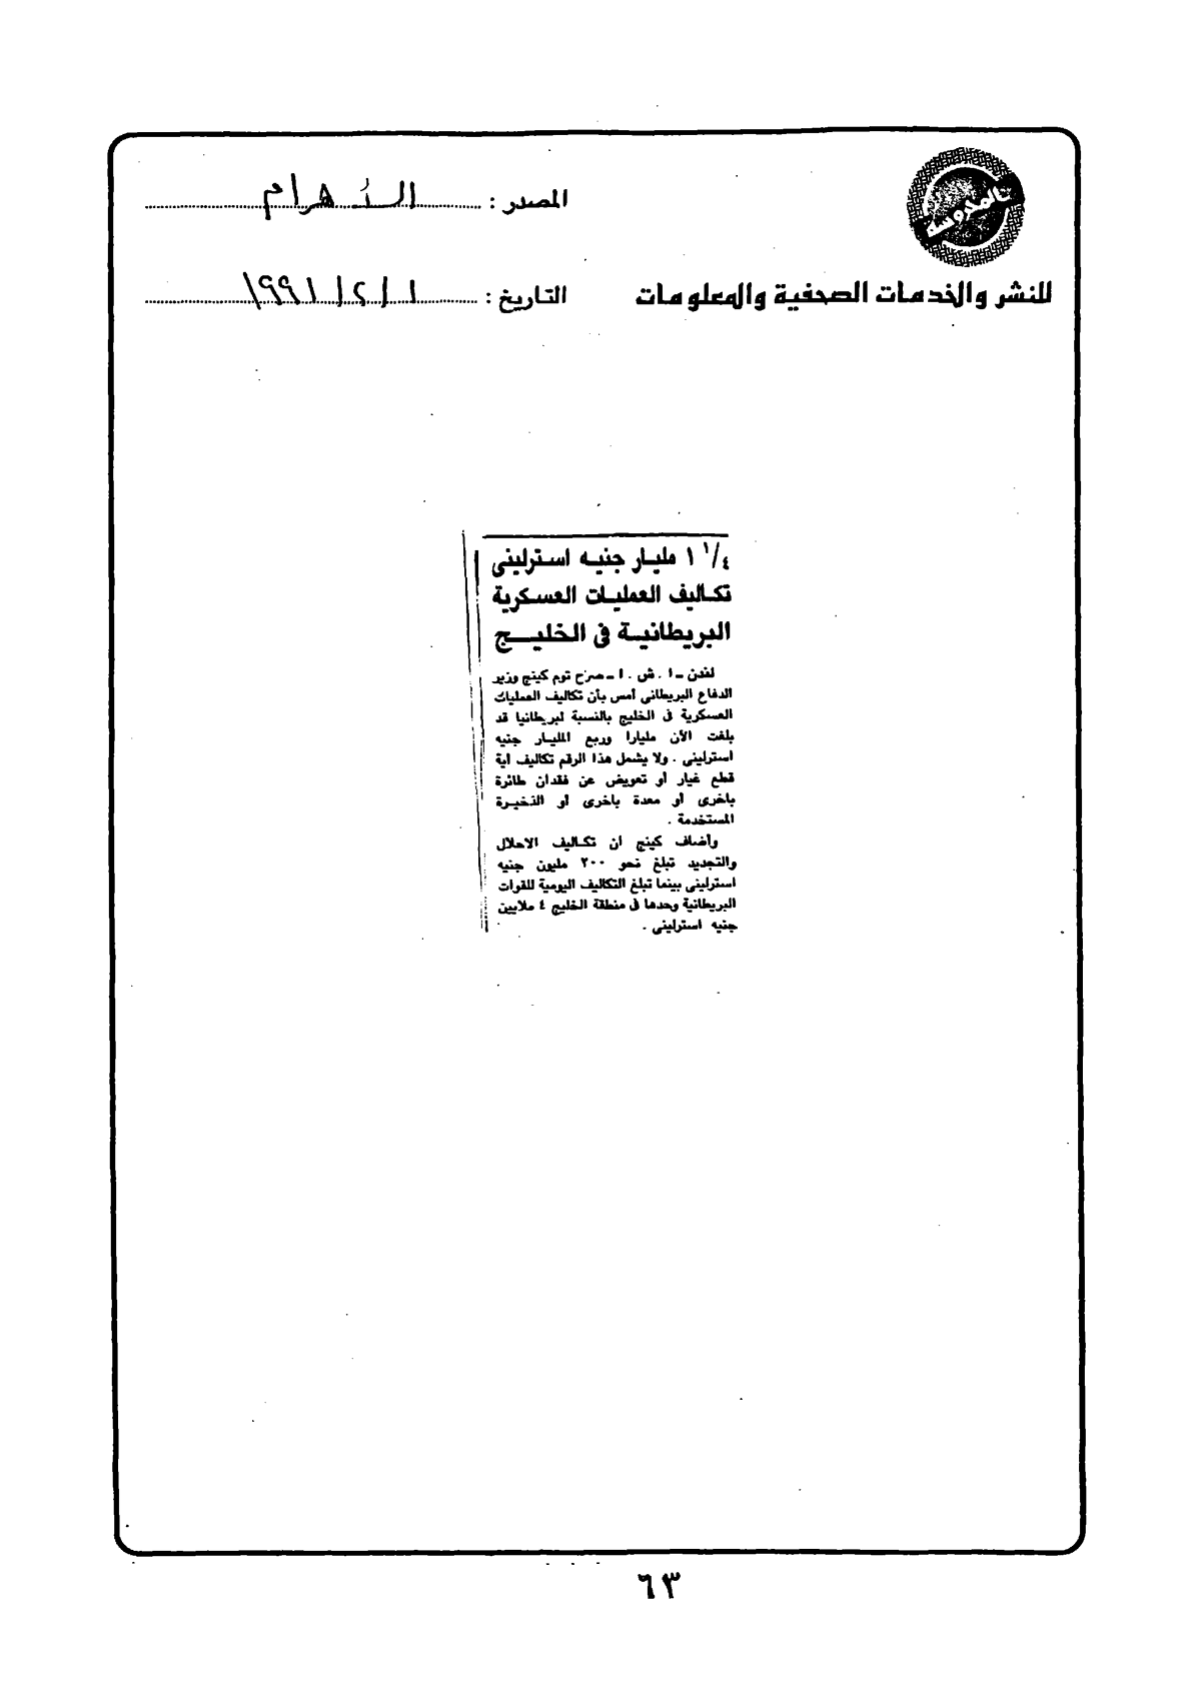 المدوسة
المصدر : الأهرام
للنشر والخدمات الصحفية والمعلومات
التاريخ : ١/٢/١٩٩١
١ ١/٤ مليار جنيه استرلينى
تكاليف العمليات العسكرية
البريطانية فى الخليج
لندن - ا . ش . ا - صرح توم كينج وزير
الدفاع البريطانى أمس بأن تكاليف العمليات
العسكرية فى الخليج بالنسبة لبريطانيا قد
بلغت الآن مليارا وربع المليار جنيه
استرلينى . ولا يشمل هذا الرقم تكاليف اية
قطع غيار أو تعويض عن فقدان طائرة
باخرى أو معدة باخرى أو الذخيرة
المستخدمة .
وأضاف كينج ان تكاليف الاحلال
والتجديد تبلغ نحو ٢٠٠ مليون جنيه
استرلينى بينما تبلغ التكاليف اليومية للقوات
البريطانية وحدها فى منطقة الخليج ٤ ملايين
جنيه استرلينى .
٦٣